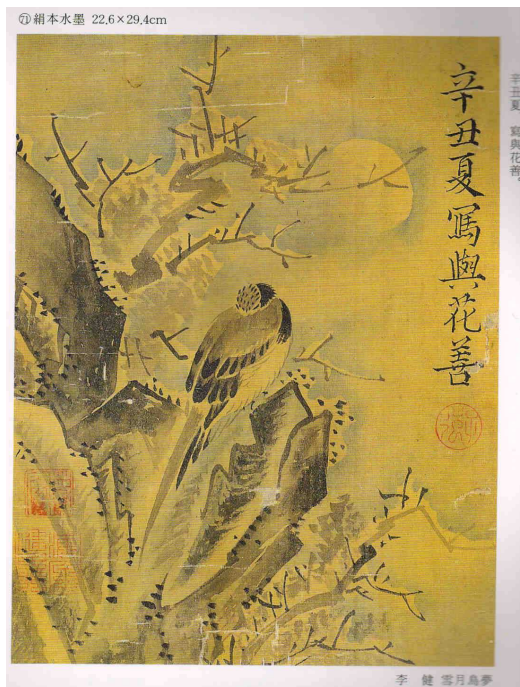 ㉑絹本水墨 22.6×29.4cm
辛丑夏寫與花善
辛丑夏 寫與花善。
李 健 雪月鳥夢